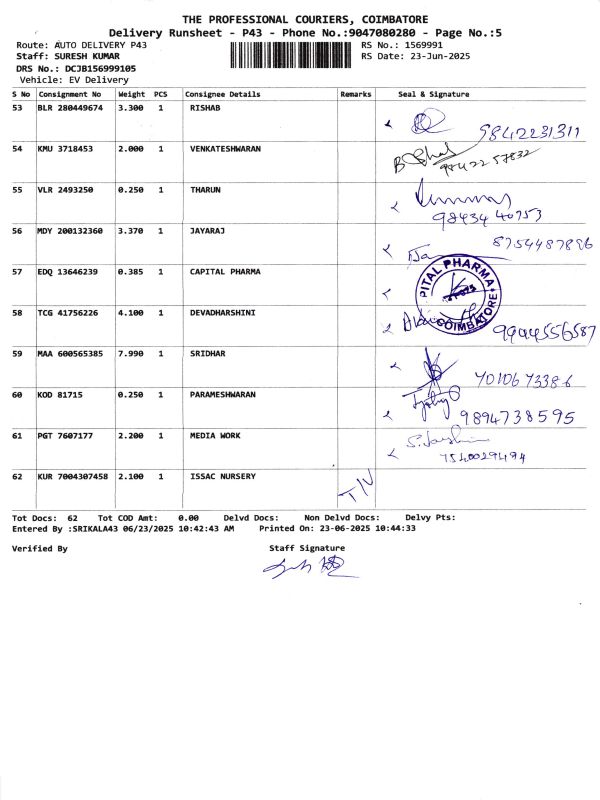 THE PROFESSIONAL COURIERS, COIMBATORE
Delivery Runsheet - P43 - Phone No.:9047080280 - Page No.:5
Route: AUTO DELIVERY P43 RS No.: 1569991
Staff: SURESH KUMAR RS Date: 23-Jun-2025
DRS No.: DCJB156999105
Vehicle: EV Delivery
S No Consignment No Weight PCS Consignee Details Remarks Seal & Signature
53 BLR 280449674 3.300 1 RISHAB 9842231311
54 KMU 3718453 2.000 1 VENKATESHWARAN 9442257832
55 VLR 2493250 0.250 1 THARUN 98434 40753
56 MDY 200132360 3.370 1 JAYARAJ 8754487896
57 EDQ 13646239 0.385 1 CAPITAL PHARMA PITAL PHARMA COIMBATORE
58 TCG 41756226 4.100 1 DEVADHARSHINI 9944556587
59 MAA 600565385 7.990 1 SRIDHAR 7010673386
60 KOD 81715 0.250 1 PARAMESHWARAN 9894738595
61 PGT 7607177 2.200 1 MEDIA WORK 7540029494
62 KUR 7004307458 2.100 1 ISSAC NURSERY T/N
Tot Docs: 62 Tot COD Amt: 0.00 Delvd Docs: Non Delvd Docs: Delvy Pts:
Entered By :SRIKALA43 06/23/2025 10:42:43 AM Printed On: 23-06-2025 10:44:33
Verified By Staff Signature